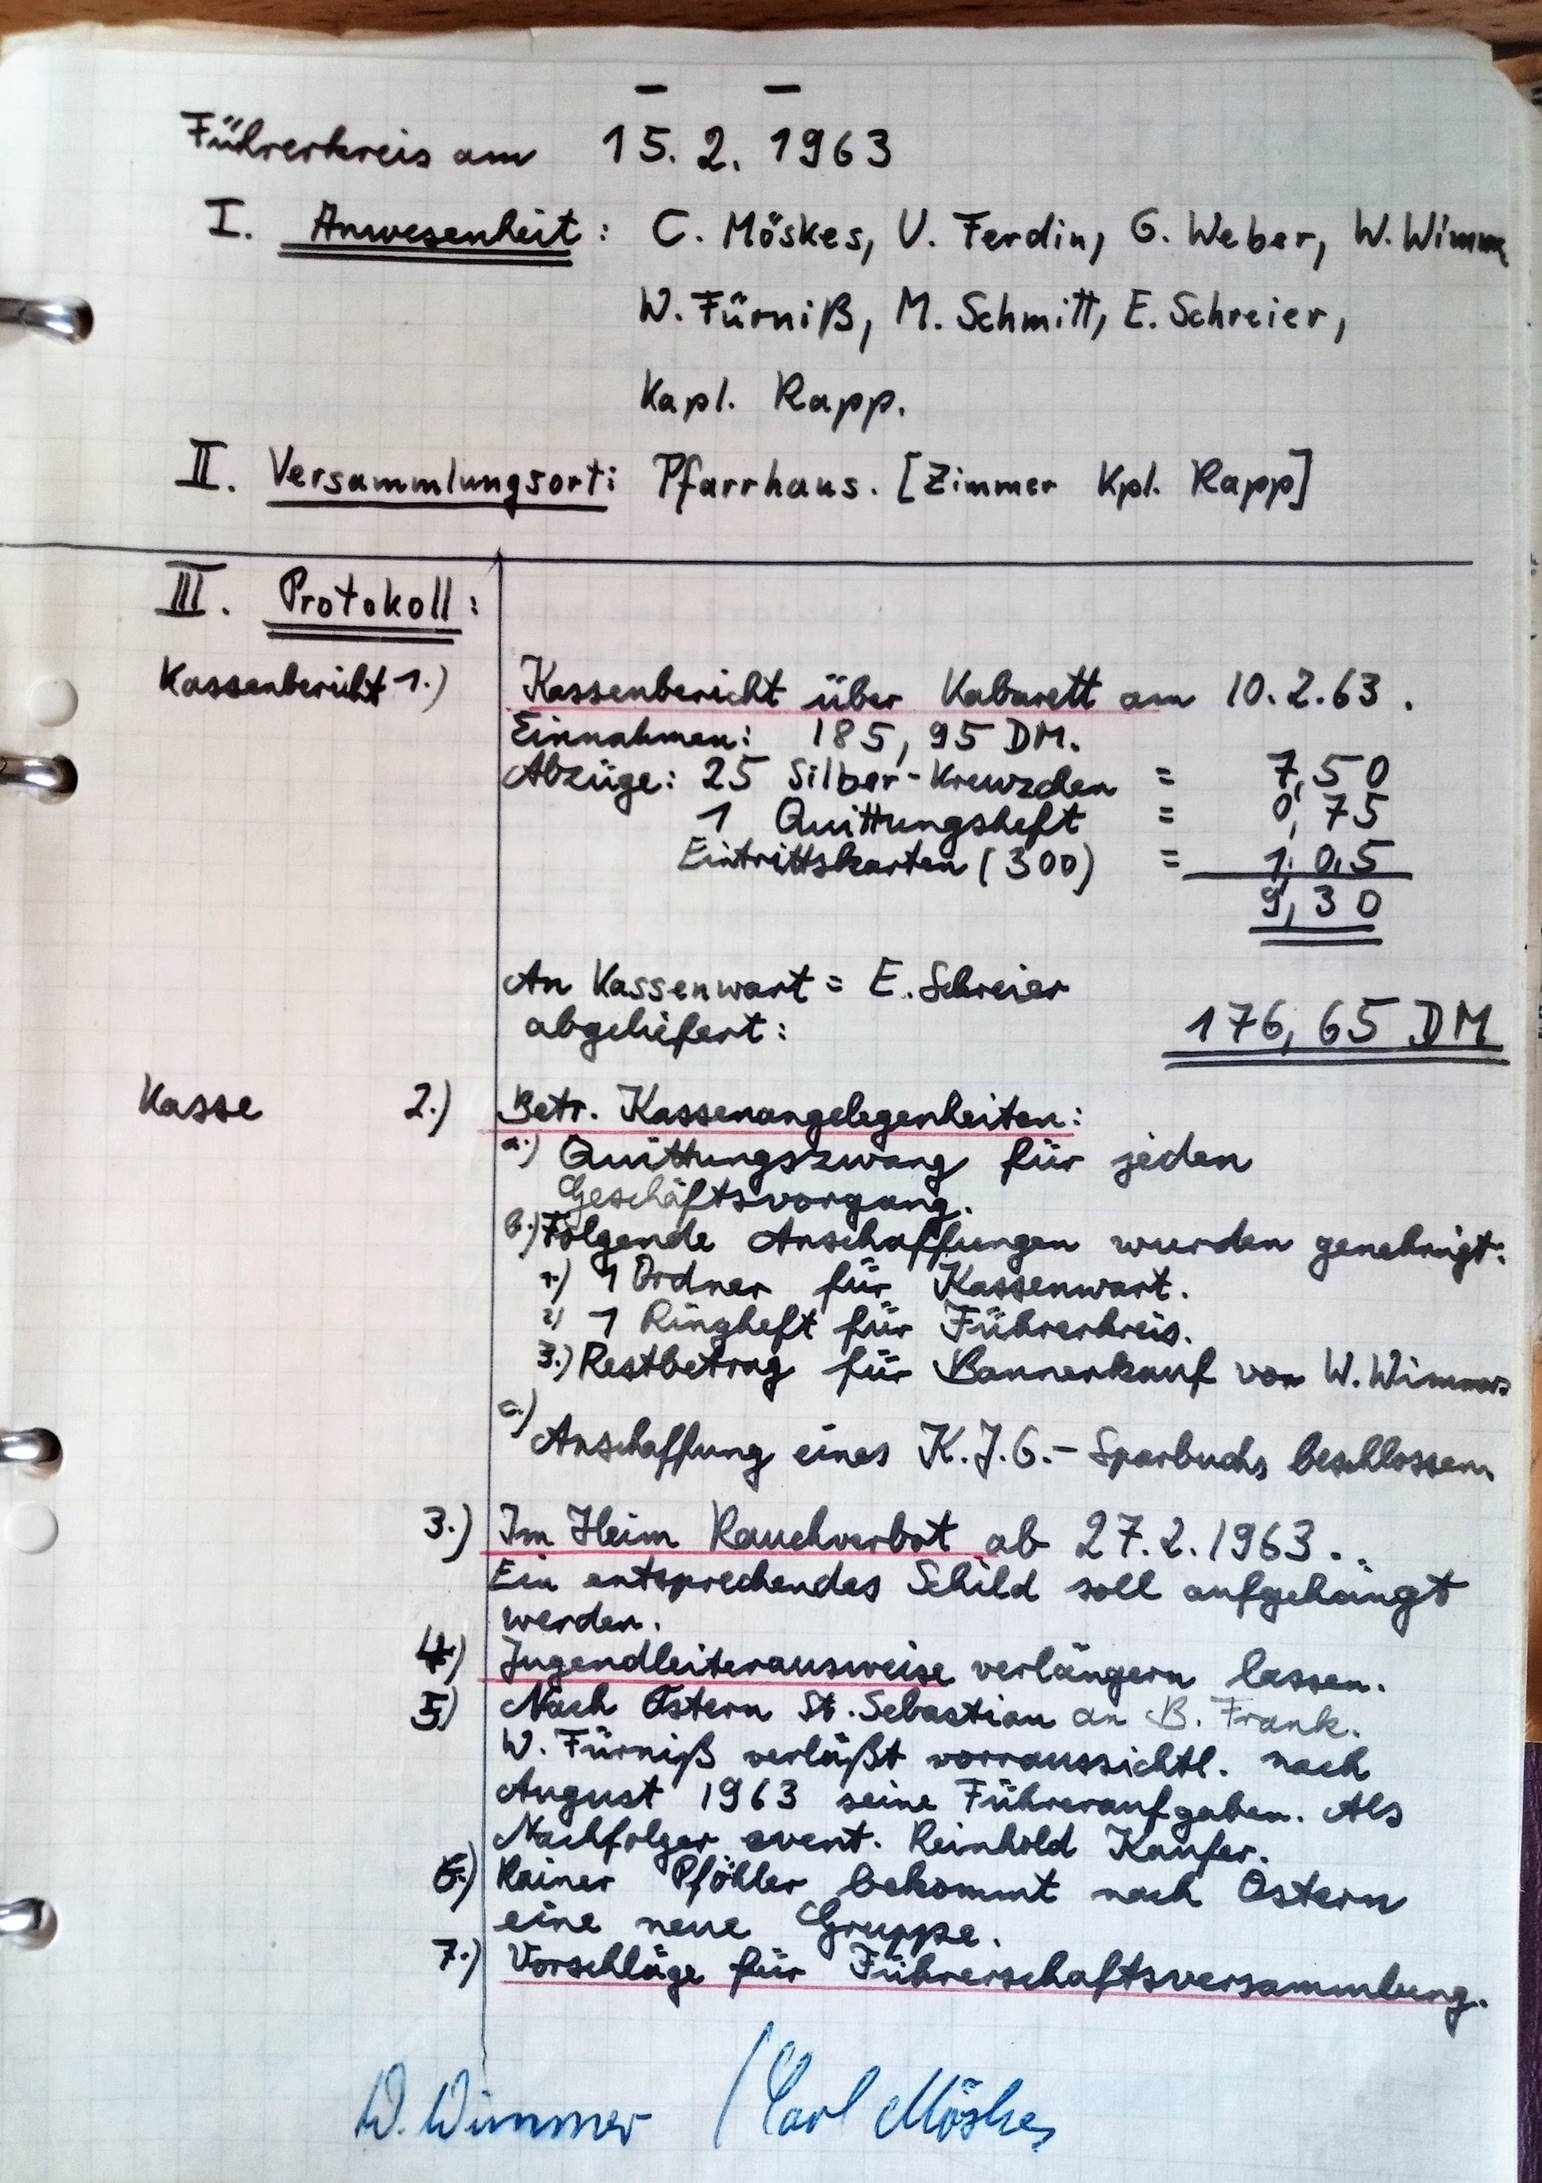 Führerkreis am 15. 2. 1963
I. Anwesenheit: C. Möskes, U. Ferdin, G. Weber, W. Wimm
W. Fürniß, M. Schmitt, E. Schreier,
Kapl. Rapp.
II. Versammlungsort: Pfarrhaus. [Zimmer Kpl. Rapp]
III. Protokoll:
Kassenbericht 1.) Kassenbericht über Kabarett am 10.2.63.
Einnahmen: 185,95 DM.
Abzüge: 25 Silber-Kreuzchen = 7,50
1 Quittungsheft = 0,75
Eintrittskarten (300) = 1,05
9,30
An Kassenwart = E. Schreier
abgeliefert: 176,65 DM
Kasse 2.) Betr. Kassenangelegenheiten:
a.) Quittungszwang für jeden
Geschäftsvorgang.
b.) Folgende Anschaffungen wurden genehmigt:
1.) 1 Ordner für Kassenwart.
2) 1 Ringheft für Führerkreis.
3.) Restbetrag für Bannerkauf von W. Wimmers
c.) Anschaffung eines K.J.G.-Sparbuchs beschlossen.
3.) Im Heim Rauchverbot ab 27.2.1963..
Ein entsprechendes Schild soll aufgehängt
werden.
4.) Jugendleiterausweise verlängern lassen.
5) Nach Ostern St. Sebastian an B. Frank.
W. Fürniß verläßt vorraussichtl. nach
August 1963 seine Führeraufgaben. Als
Nachfolger event. Reinhold Kaufer.
6.) Rainer Pföhler bekommt nach Ostern
eine neue Gruppe.
7.) Vorschläge für Führerschaftsversammlung.
W. Wimmer / Carl Möskes